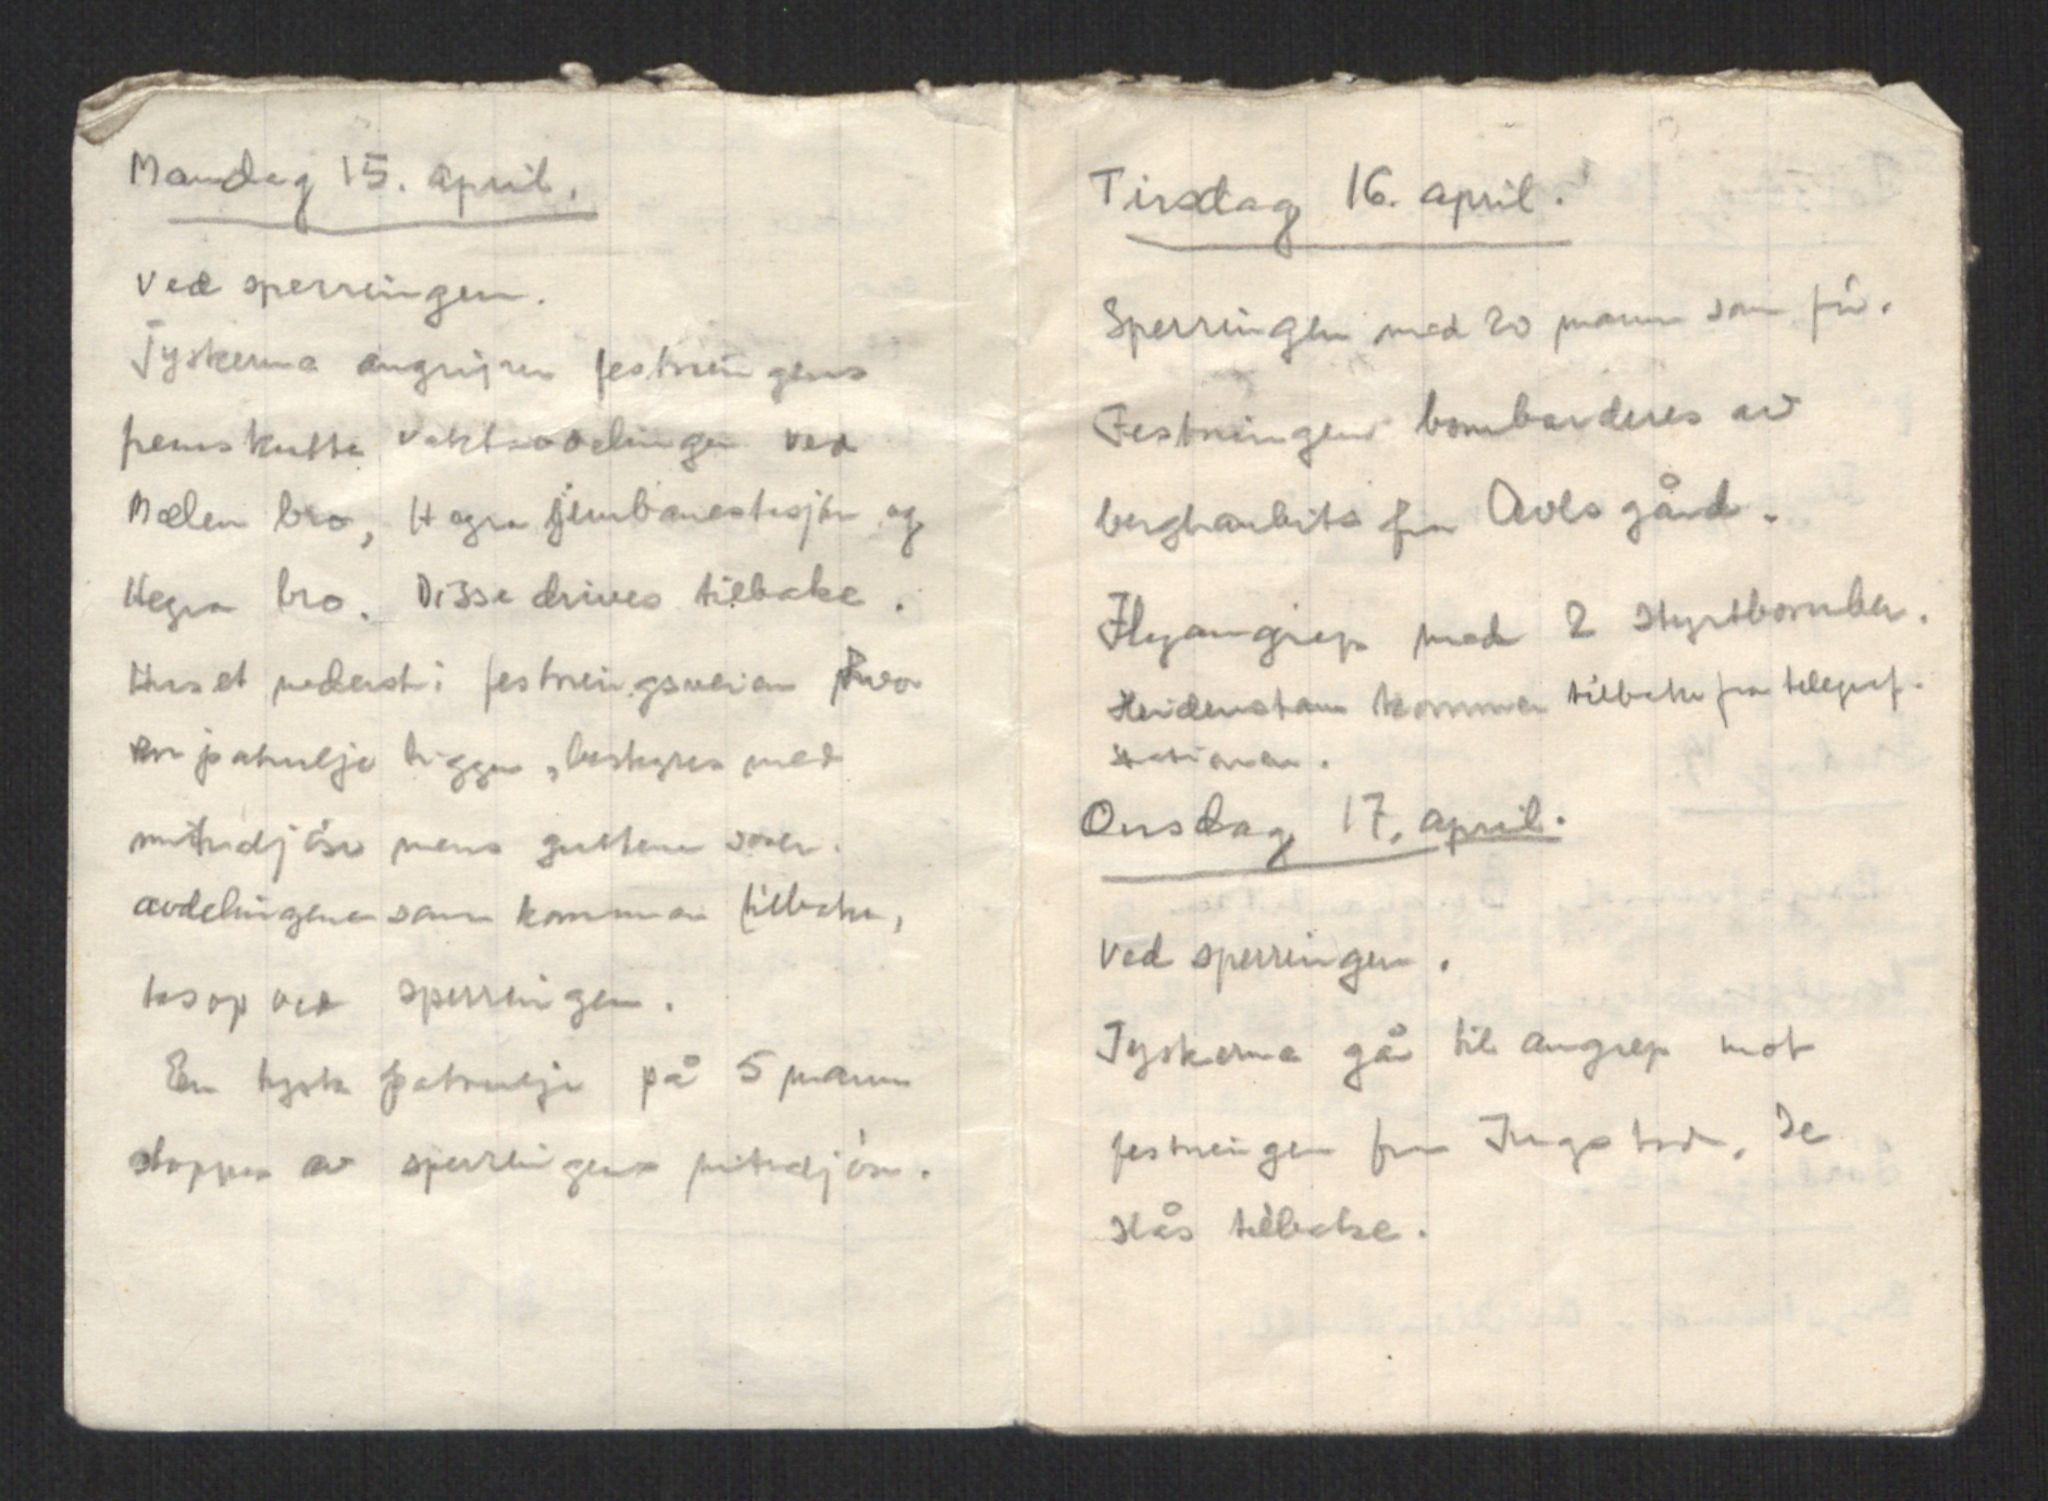 Mandag 15. april.
Ved sperringen.
Tyskerna angriper festningens
fremskutte vaktavdelinger ved
Mælen bro, Hegra jernbanestasjon og
Hegra bro. Disse drives tilbake.
Huset nederst i festningsveien hvor
en patrulje ligger, beskytes med
mitraljøse mens guttene sover.
avdelingene som kommer tilbake,
tas op ved sperringen.
En tysk patrulje på 5 mann
stoppes av sperringens mitraljøse.
Tirsdag 16. april.
Sperringen med 20 mann som før.
Festningen bombarderes av
berghaubits fra Avlsgård.
Flyangrep med 2 styrtbomber.
Heidenstam kommer tilbake fra telegraf-
stationen.
Onsdag 17. april.
Ved sperringen.
Tyskerna går til angrep mot
festningen fra Ingstad. De
slås tilbake.